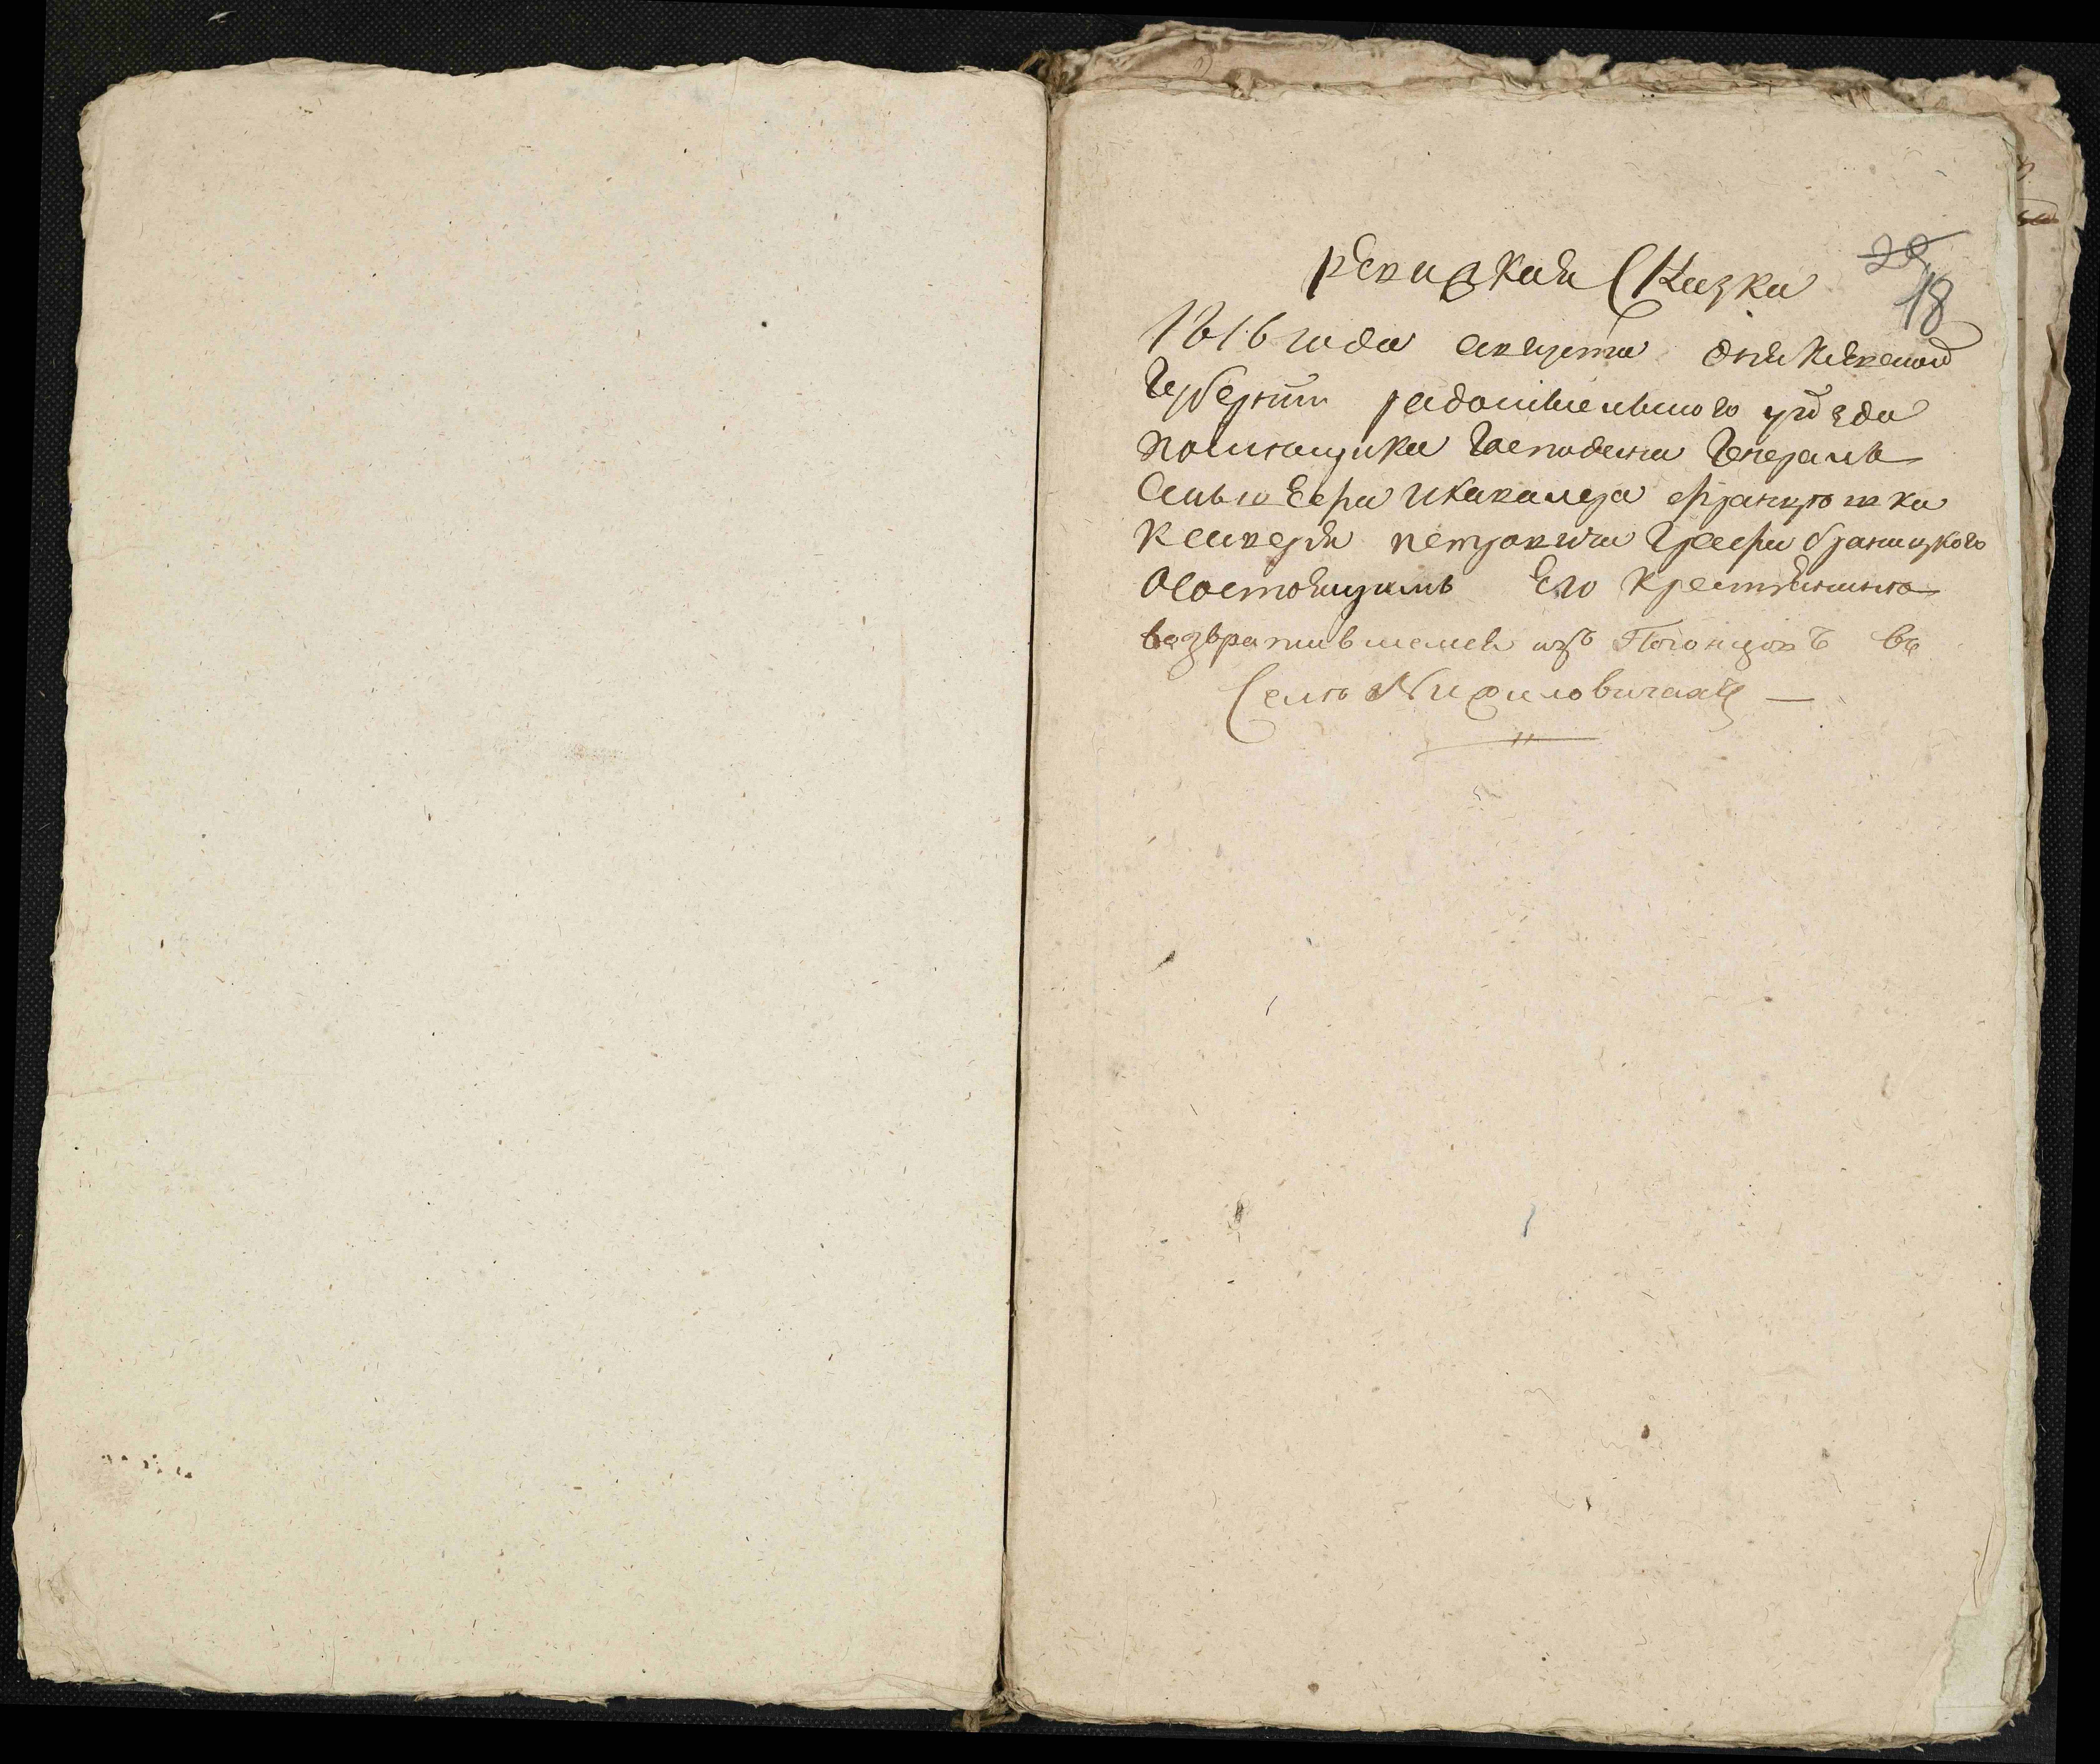 ревизская Сказка
29
18
1816 года августа дня Киевской
Губернии радомысльского уезда
помещика Господина Генералъ
Аншефа Икавалера Францышка
Ксаверія петровича Графа браницкого
Осостоящимъ Его крестьянинѣ
возвратившемся изъ Погонцовъ въ
Селѣ Михиловичахъ —